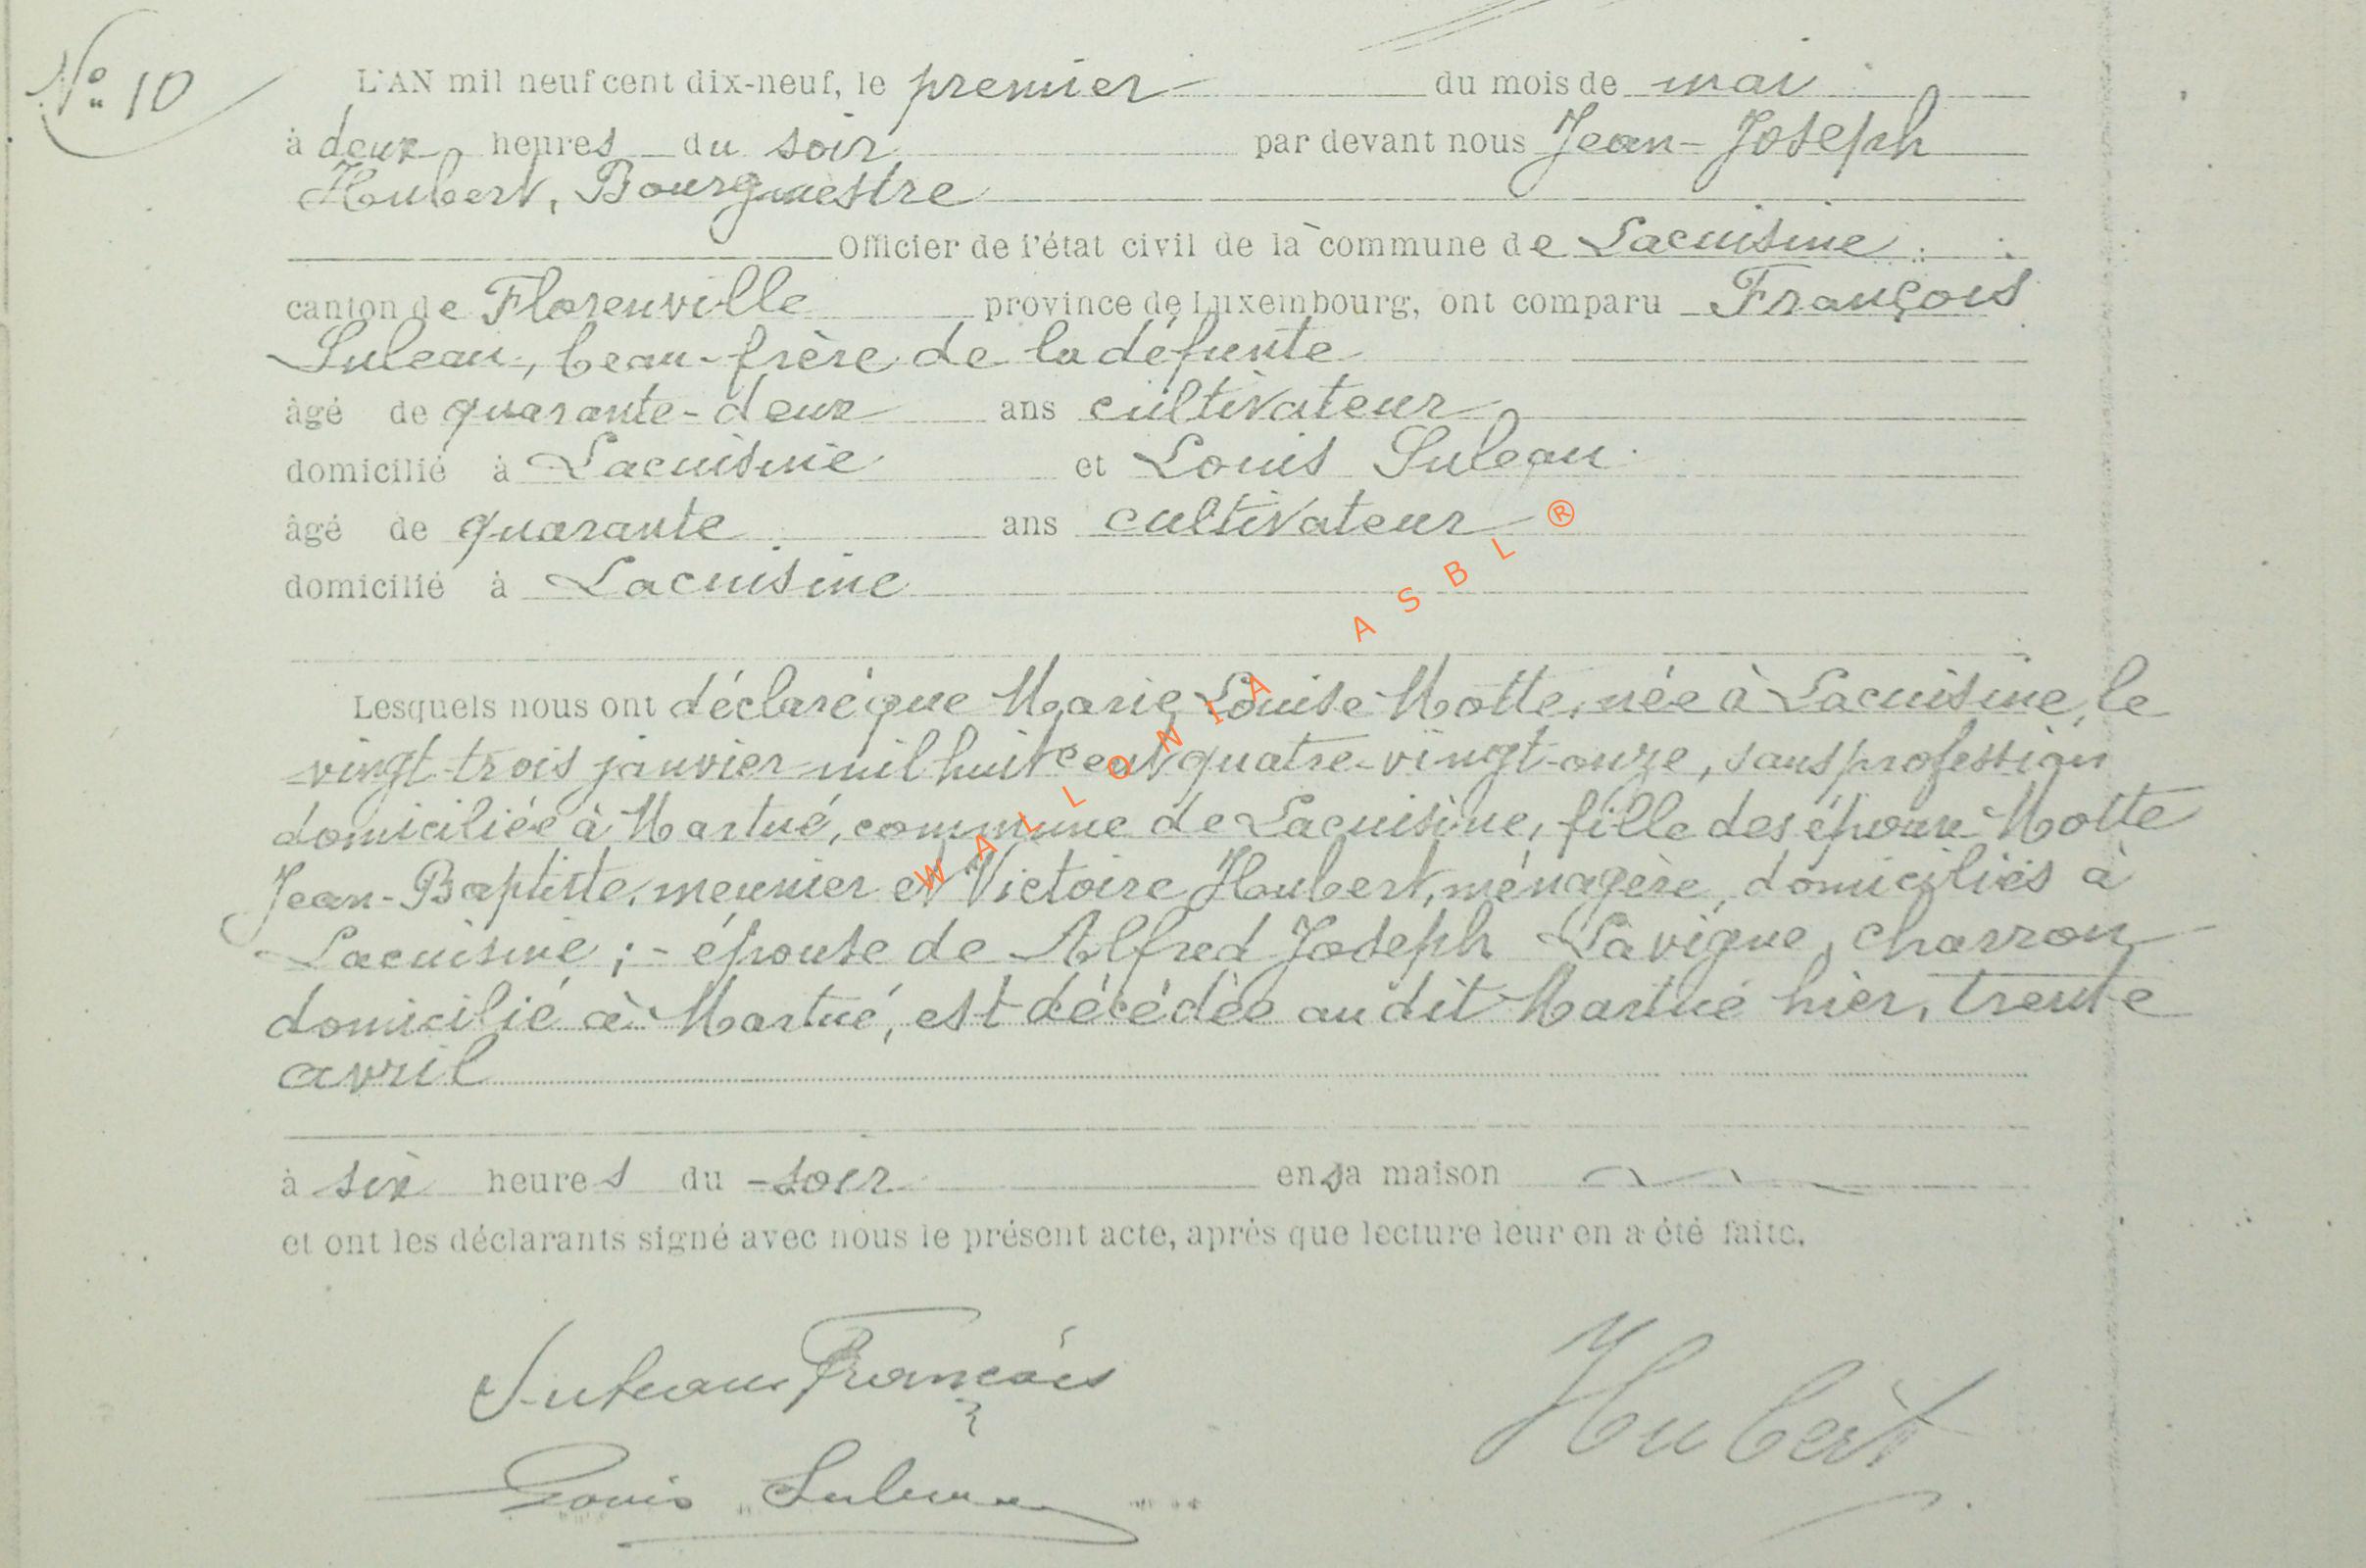 N° 10
L'AN mil neuf cent dix-neuf, le premier du mois de mai
à deux heures du soir par devant nous Jean-Joseph
Hubert, Bourgmestre
Officier de l'état civil de la commune de Lacuisine
canton de Florenville province de Luxembourg, ont comparu François
Suleau, beau-frère de la défunte
âgé de quarante-deux ans cultivateur
domicilié à Lacuisine et Louis Suleau
âgé de quarante ans cultivateur
domicilié à Lacuisine
Lesquels nous ont déclaré que Marie Louise Motte, née à Lacuisine, le
vingt-trois janvier mil huit cent quatre-vingt-onze, sans profession
domiciliée à Martué, commune de Lacuisine, fille des époux Motte
Jean-Baptiste, meunier et Victoire Hubert, ménagère, domiciliés à
Lacuisine ; - épouse de Alfred Joseph Lavigne, charron
domicilié à Martué, est décédée au dit Martué hier, trente
avril
à six heures du soir en sa maison
et ont les déclarants signé avec nous le présent acte, après que lecture leur en a été faite.
Suleau François
Hubert
Louis Suleau
WALLONIA ASBL ®